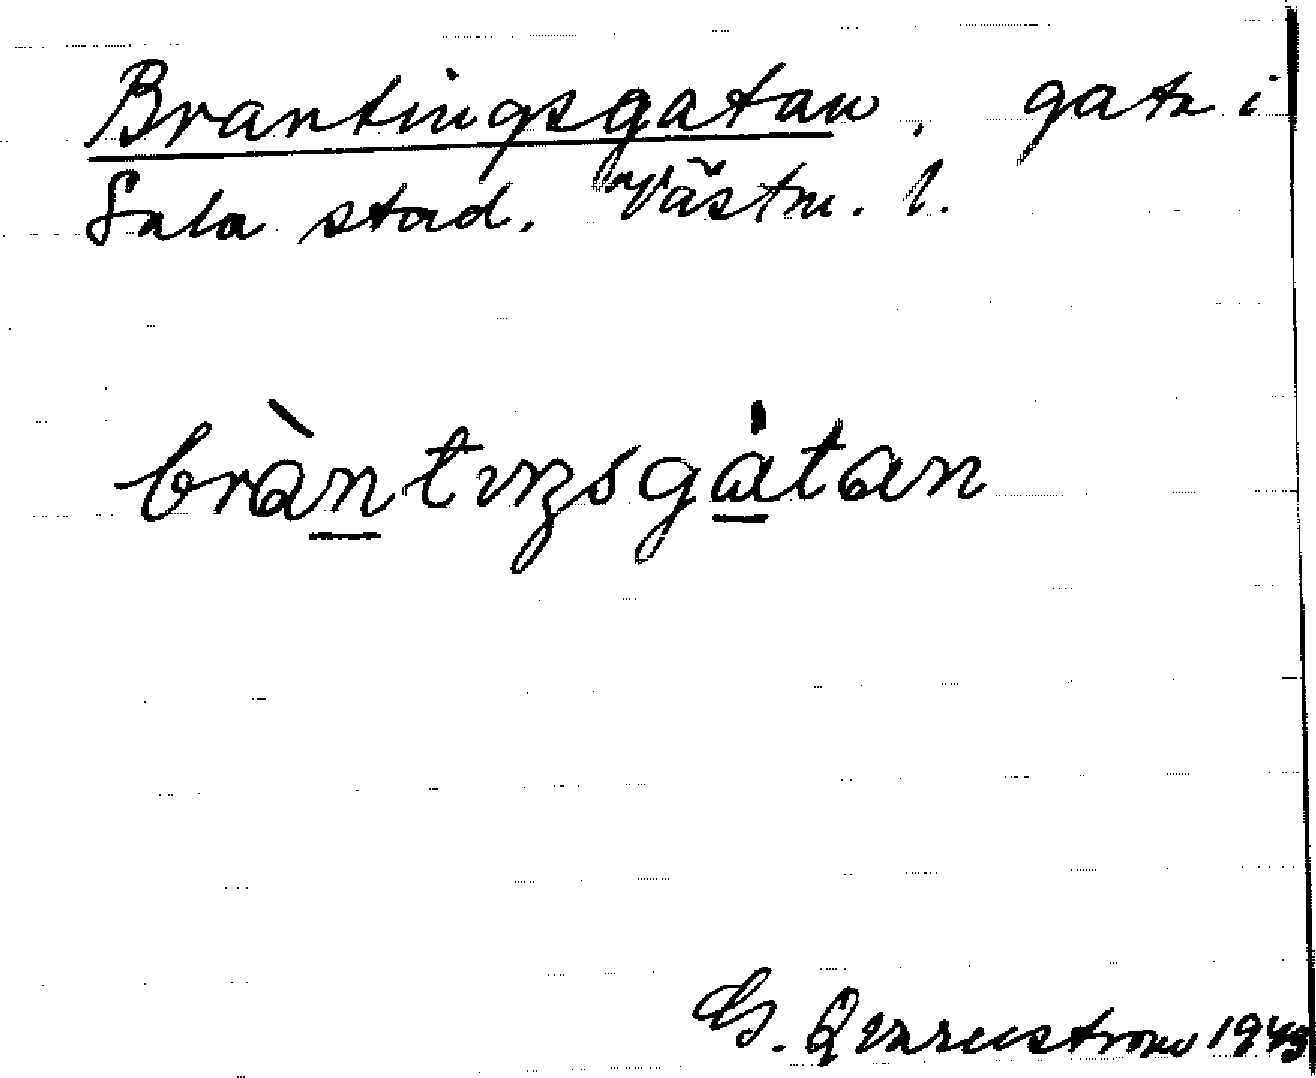 Brantingsgatan, gata i
Sala stad. Västm. l.
bràntıŋsgàtan
G. Qvarnström 1943